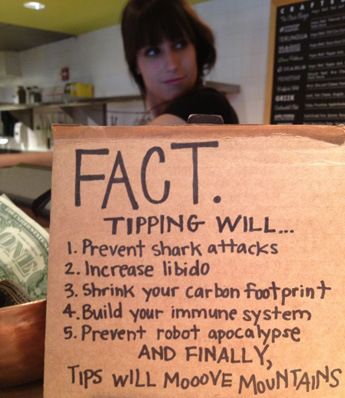 FACT.
TIPPING WILL...
1. Prevent shark attacks
2. Increase libido
3. Shrink your carbon footprint
4. Build your immune system
5. Prevent robot apocalypse
AND FINALLY,
TIPS WILL MOOOVE MOUNTAINS
ONE